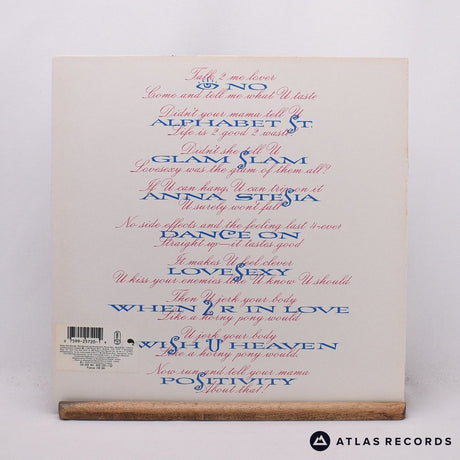 Talk 2 me lover
NO
Come and tell me what U taste
Didn't your mama tell U
ALPHABET ST.
Life is 2 good 2 waste
Didn't she tell U
GLAM SLAM
Lovesexy was the glam of them all?
If U can hang, U can trip on it
ANNA STESIA
U surely won't fall
No side effects and the feeling last 4-ever
DANCE ON
Straight up—it tastes good
It makes U feel clever
LOVESEXY
U kiss your enemies like U know U should
Then U jerk your body
WHEN 2 R IN LOVE
Like a horny pony would
U jerk your body
I WISH U HEAVEN
Like a horny pony would
Now run and tell your mama
POSITIVITY
About that!
0 7599-25720-1
ATLAS RECORDS